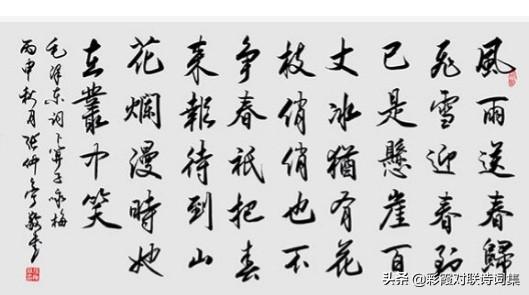 風雨送春歸
飛雪迎春到
已是懸崖百
丈冰猶有花
枝俏俏也不
争春祇把春
来報待到山
花爛漫時她
在叢中笑
毛澤东词卜算子咏梅
丙申秋月张仲亭
头条 @彩霞对联诗词集